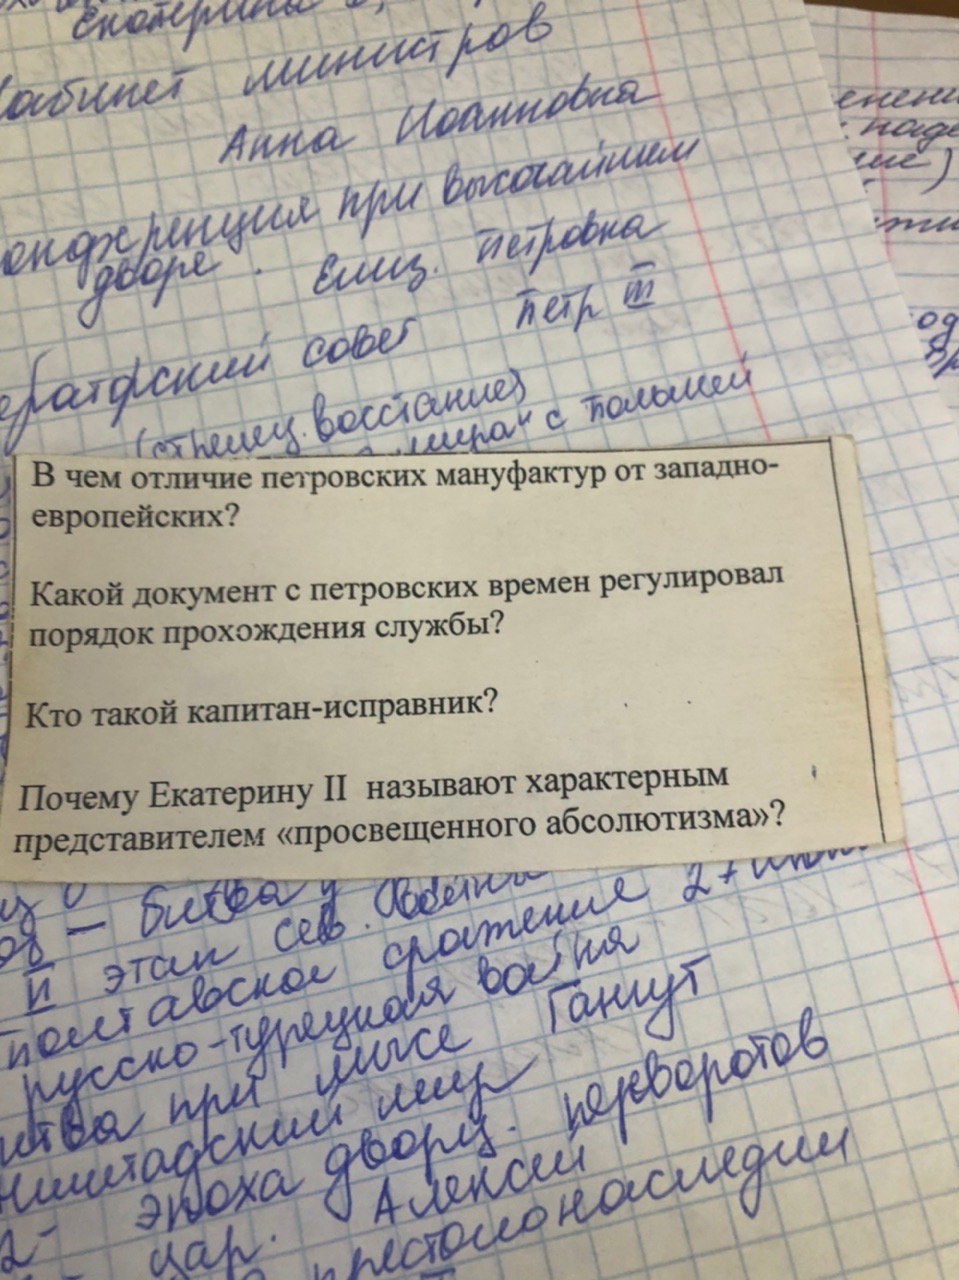 Екатерина I,
Кабинет министров
Анна Иоанновна
Конференция при высочайшем
дворе. Елиз. Петровна
Петр III
совет
(стрелец. восстание)
мира" с польшей
В чем отличие петровских мануфактур от западно-
европейских?
Какой документ с петровских времен регулировал
порядок прохождения службы?
Кто такой капитан-исправник?
Почему Екатерину II называют характерным
представителем «просвещенного абсолютизма»?
— битва у
II этап сев. войны
полтавское сражение 27 июня
русско-турецкая война
битва при мысе Гангут
мир
эпоха дворц. переворотов
цар. Алексей
престолонаследии